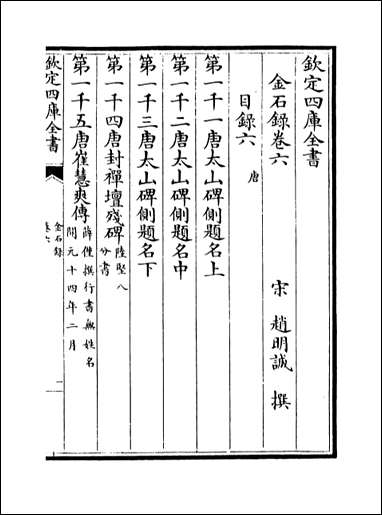 欽定四庫全書
金石錄卷六
宋 趙明誠 撰
目錄六 唐
第一千一唐太山碑側題名上
第一千二唐太山碑側題名中
第一千三唐太山碑側題名下
第一千四唐封禪壇殘碑 陸堅八分書
第一千五唐崔慧爽傳 薛僅撰行書無姓名開元十四年二月
欽定四庫全書
金石錄
卷六
一